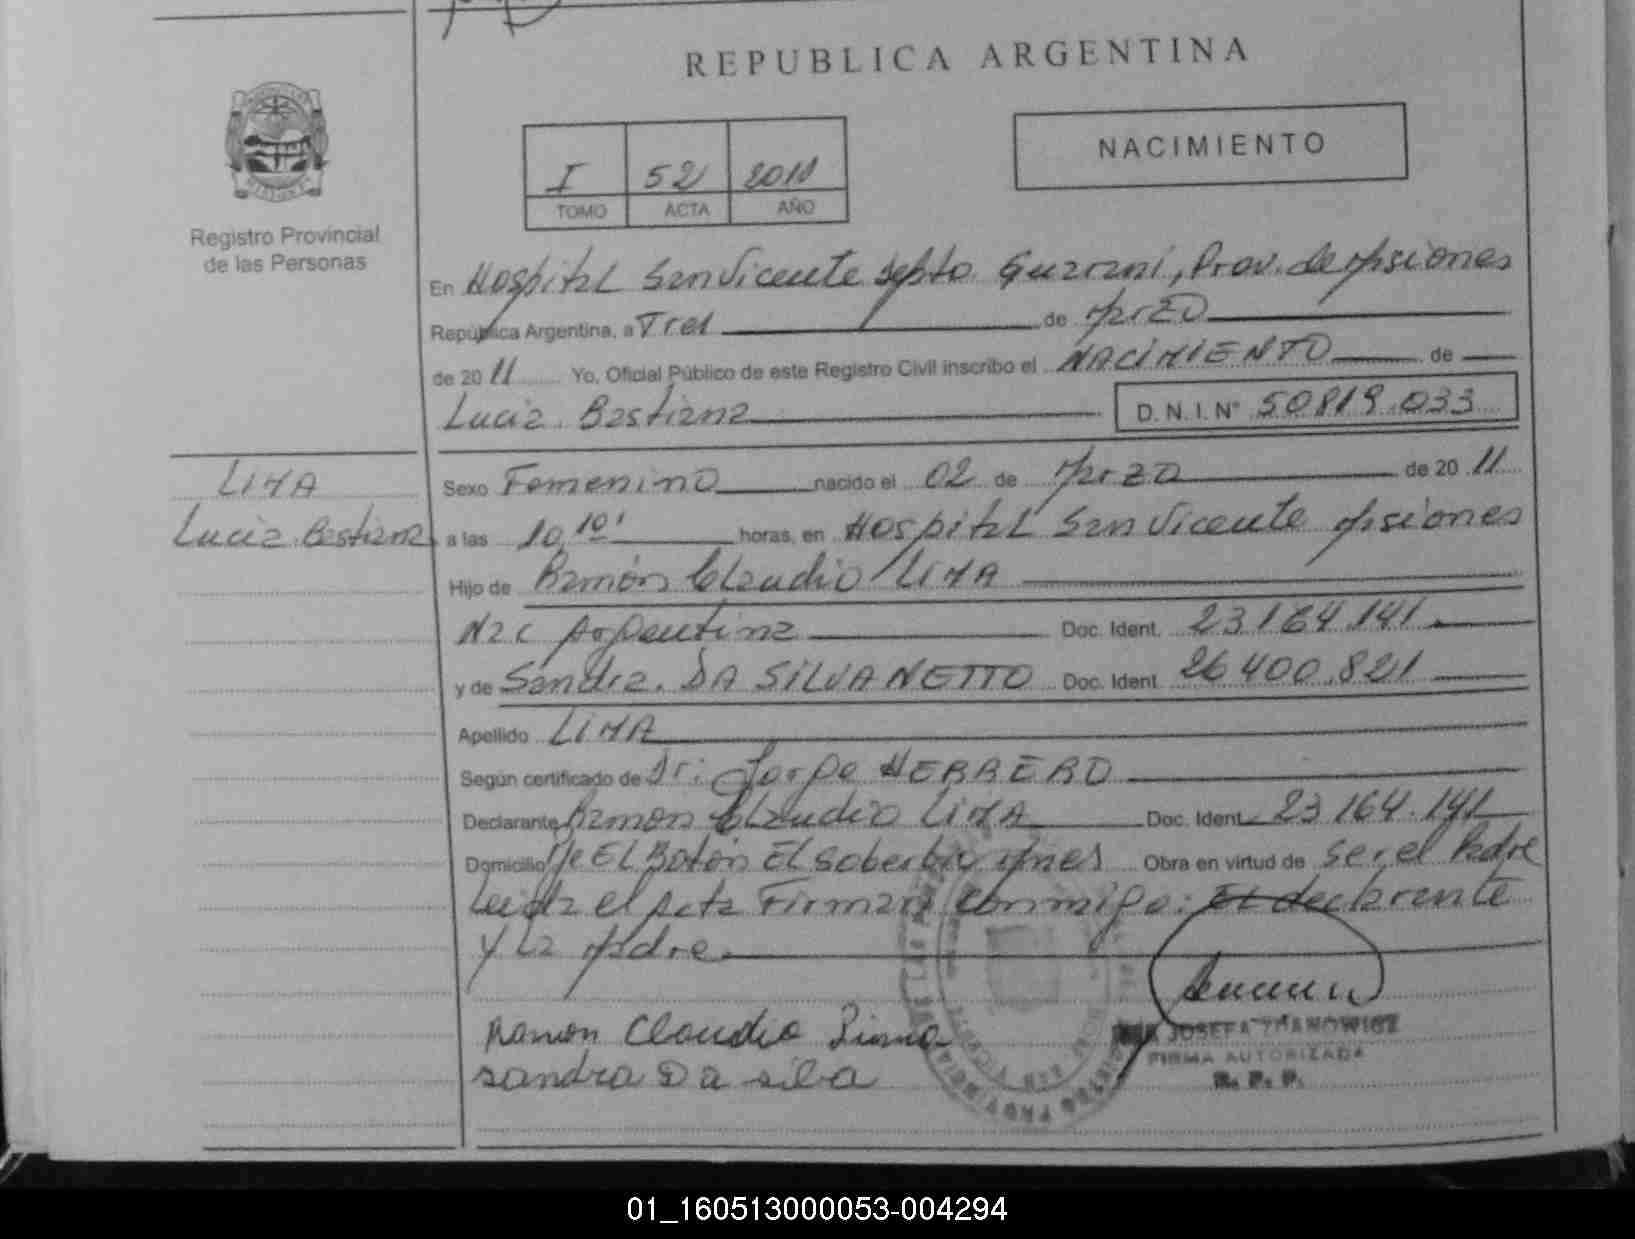 REPUBLICA ARGENTINA
NACIMIENTO
I 52 2011
TOMO ACTA AÑO
Registro Provincial
de las Personas
En Hospital San Vicente Depto. Guarani, Prov. de Misiones
República Argentina, a Tres de Marzo
de 2011 Yo, Oficial Público de este Registro Civil inscribo el NACIMIENTO de
Lucia Bastiana D.N.I. Nº 50819.033
LIMA
Lucia Bastiana
Sexo Femenino nacido el 02 de Marzo de 2011
a las 10,10' horas, en Hospital San Vicente Misiones
Hijo de Ramón Claudio LIMA
Nac Argentina Doc. Ident. 23.164.141
y de Sandra DA SILVA NETTO Doc. Ident. 26.400.821
Apellido LIMA
Según certificado de Dr: Jorge HERRERO
Declarante Ramon Claudio LIMA Doc. Ident. 23.164.141
Domicilio El Soberbio Mnes Obra en virtud de ser el Padre
Leida el Acta Firman conmigo: El declarante
y La Madre
Ramon Claudio Lima
sandra Da silva
JOSEFA
FIRMA AUTORIZADA
R. P. P.
01_160513000053-004294